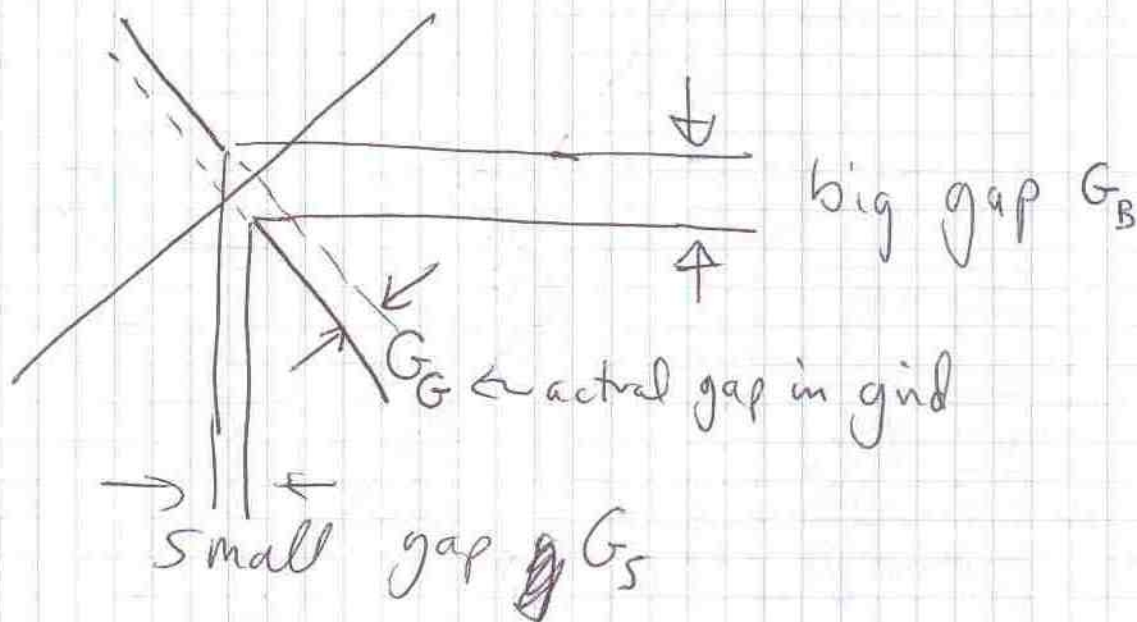 big gap G_B
G_G ← actual gap in grid
small gap G_S